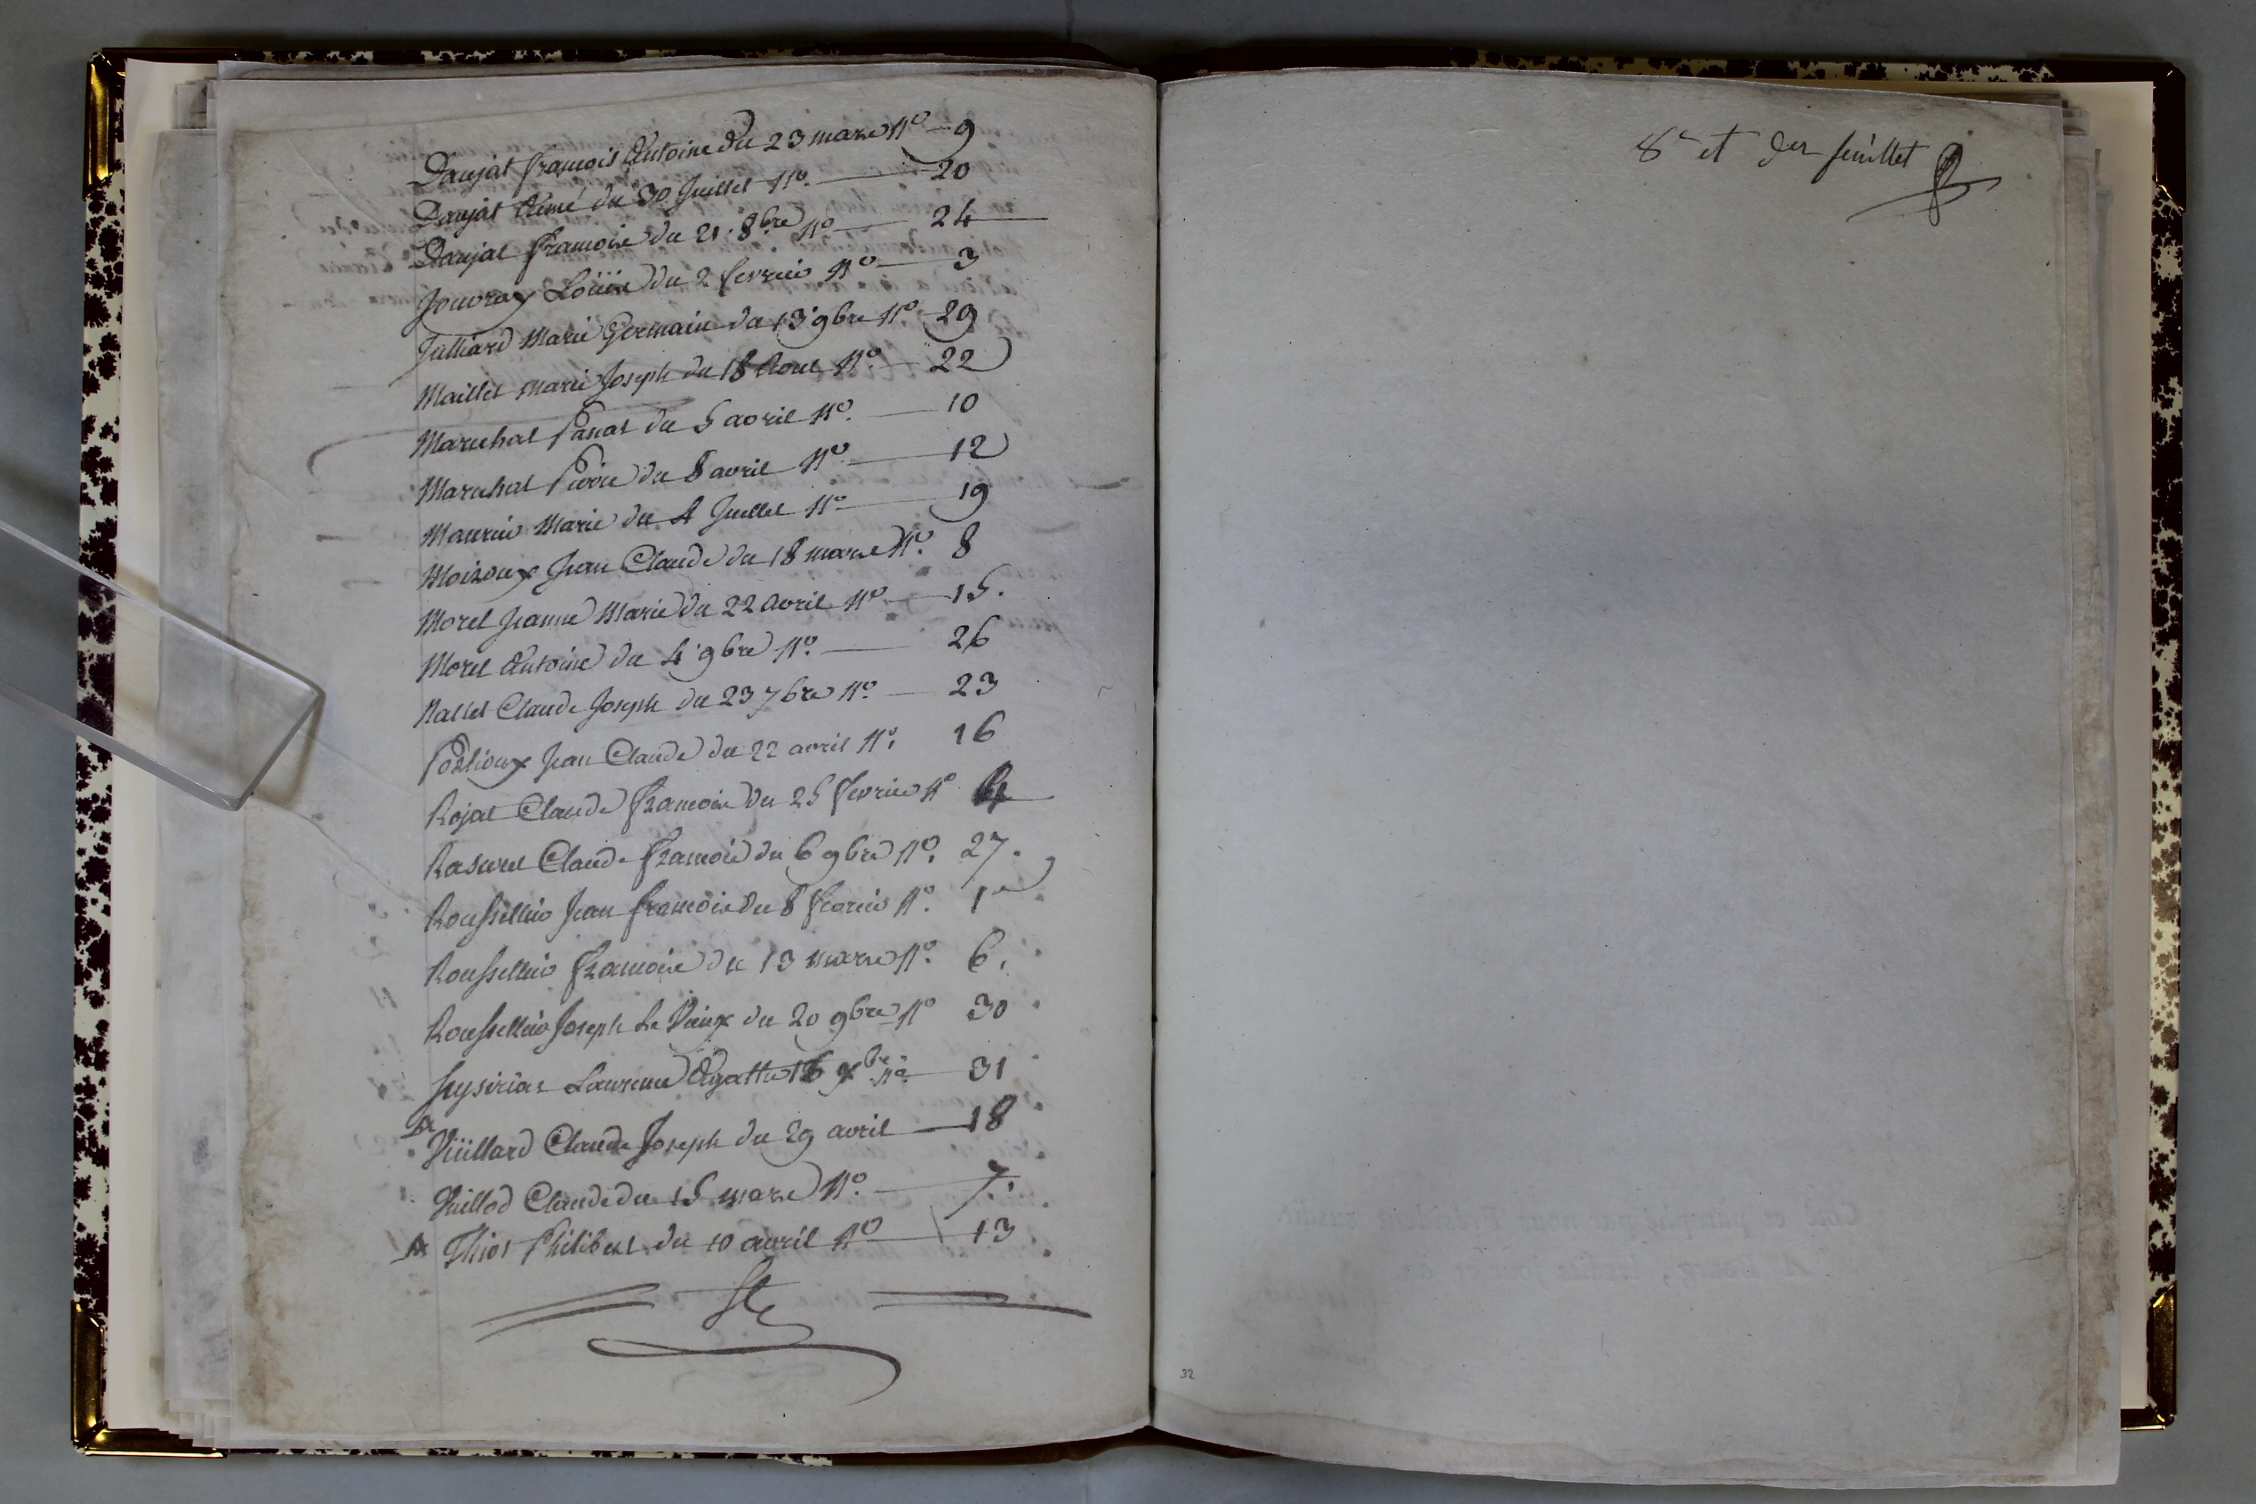 Daujat françois Antoine du 23 mars N° 9
Daujat Aimé du 30 Juillet N° 20
Daujat françoise du 21. 8bre N° 24
Jouvray Loüise du 2 fevrier N° 3
Julliard Marie Germain du 13 9bre N° 29
Maillet Marie Joseph du 18 Aout N° 22
Marechal du 5 avril N° 10
Marechal Pierre du 8 avril N° 12
Maurier Marie du 4 Juillet N° 19
Moiroux Jean Claude du 18 mars N° 8
Morel Jeanne Marie du 22 avril N° 15.
Morel Antoine du 4 9bre N° 26
Nallet Claude Joseph du 23 7bre N° 23
Jean Claude du 22 avril N° 16
Rojat Claude françoise du 25 fevrier N° 4
Rasurel Claude françois du 6 9bre N° 27.
Rousselliér Jean françois du 8 fevrier N° 1er
Rousselliér françoise du 13 mars N° 6.
Rousselliér Joseph Le Vieux du 20 9bre N° 30
Laurence Agathe 16 Xbre N° 31
Vüillard Claude Joseph du 29 avril 18
Vuillod Claude du 15 mars N° 7.
Thios Philibert du 10 avril N° 13
8e et der feuillet
32